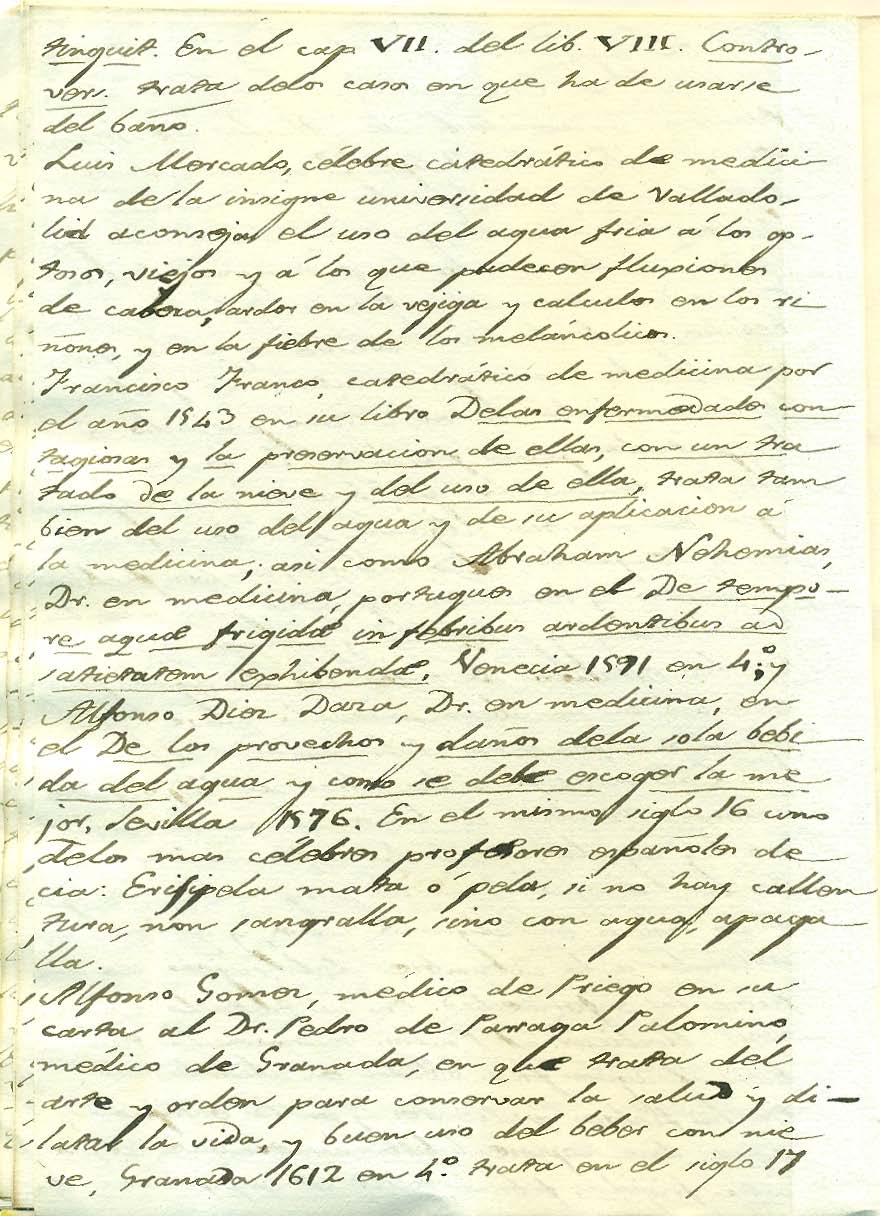 tinguit. En el cap VII. del lib. VIII. Contro-
vers. trata delos casos en que ha de usarse
del baño.
Luis Mercado, célebre catedrático de medici
na de la insigne universidad de Vallado-
lid aconseja el uso del agua fria á los go-
tosos, viejos y á los que padecen fluxiones
de cabeza, ardor en la vejiga y calculos en los ri
ñones, y en la fiebre de los meláncolicos.
Francisco Franco, catedrático de medicina por
el año 1543 en su libro Delas enfermedades con
tagiosas y la preservacion de ellas, con un tra
tado de la nieve y del uso de ella, trata tam
bien del uso del agua y de su aplicacion á
la medicina; asi como Abraham Nehemias,
Dr. en medicina, portugues en el De tempo-
re aquæ frigidæ in febribus ardentibus ad
satietatem exhibendæ, Venecia 1591 en 4º; y
Alfonso Diez Daza, Dr. en medicina, en
el De los provechos y daños dela sola bebi
da del agua y como se debe escoger la me
jor, Sevilla 1576. En el mismo siglo 16 uno
delos mas célebres profesores españoles de
cia: Erisipela mata ó pela, si no hay callen
tura, non sangralla, sino con agua, apaga
lla.
Alfonso Gomez, médico de Priego en su
carta al Dr. Pedro de Parraga Palomino,
médico de Granada, en que trata del
arte y orden para conservar la salud y di-
latar la vida, y buen uso del beber con nie
ve, Granada 1612 en 4º. trata en el siglo 17